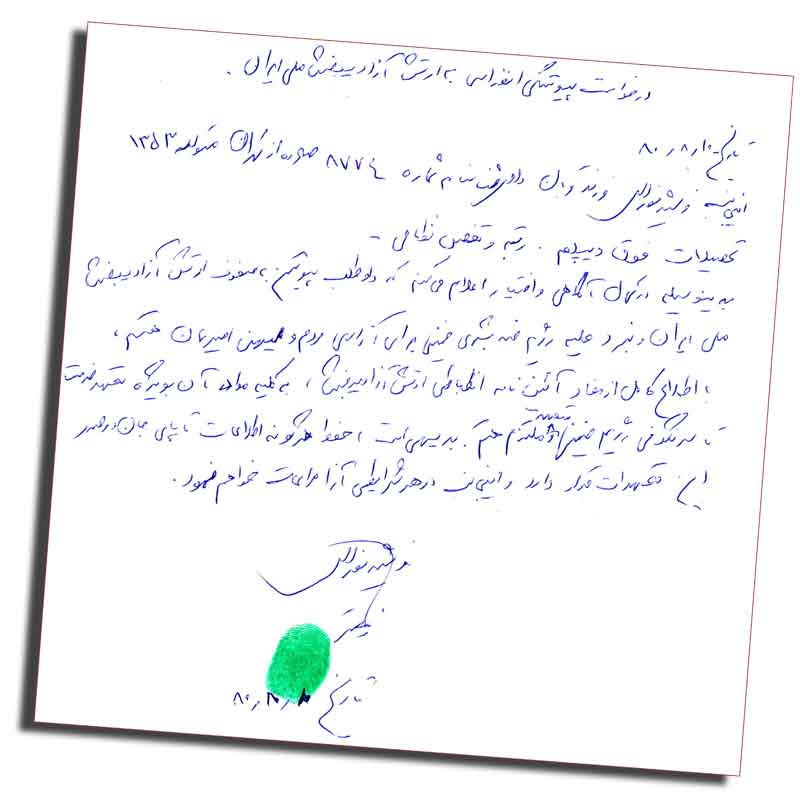 درخواست پیوستگی انفرادی به ارتش آزادیبخش ملی ایران .
تاریخ ۱۰ر۸ر۸۰
اینجانب فرزند قربان دارای شناسنامه شماره ۸۷۷٤ صادره از تهران متولد ۱۳۵۳
تحصیلات فوق دیپلم . رتبه و تخصص نظامی -
بدینوسیله در کمال آگاهی و اختیار اعلام می‌کنم که داوطلب پیوستن به صفوف ارتش آزادیبخش
ملی ایران و نبرد علیه رژیم ضد بشری خمینی برای آزادی مردم و میهن اسیرمان هستم ،
با اطلاع کامل از مفاد آئین نامه انضباطی ارتش آزادیبخش ، به کلیه مواد آن بویژه تعهد خدمت
تا سرنگونی رژیم خمینی متعهد و ملتزم هستم . بدیهی است ، حفظ هرگونه اطلاعات تا پای جان در صدر
این تعهدات قرار دارد و اینجانب در هر شرایطی آنرا مراعات خواهم نمود .
تاریخ